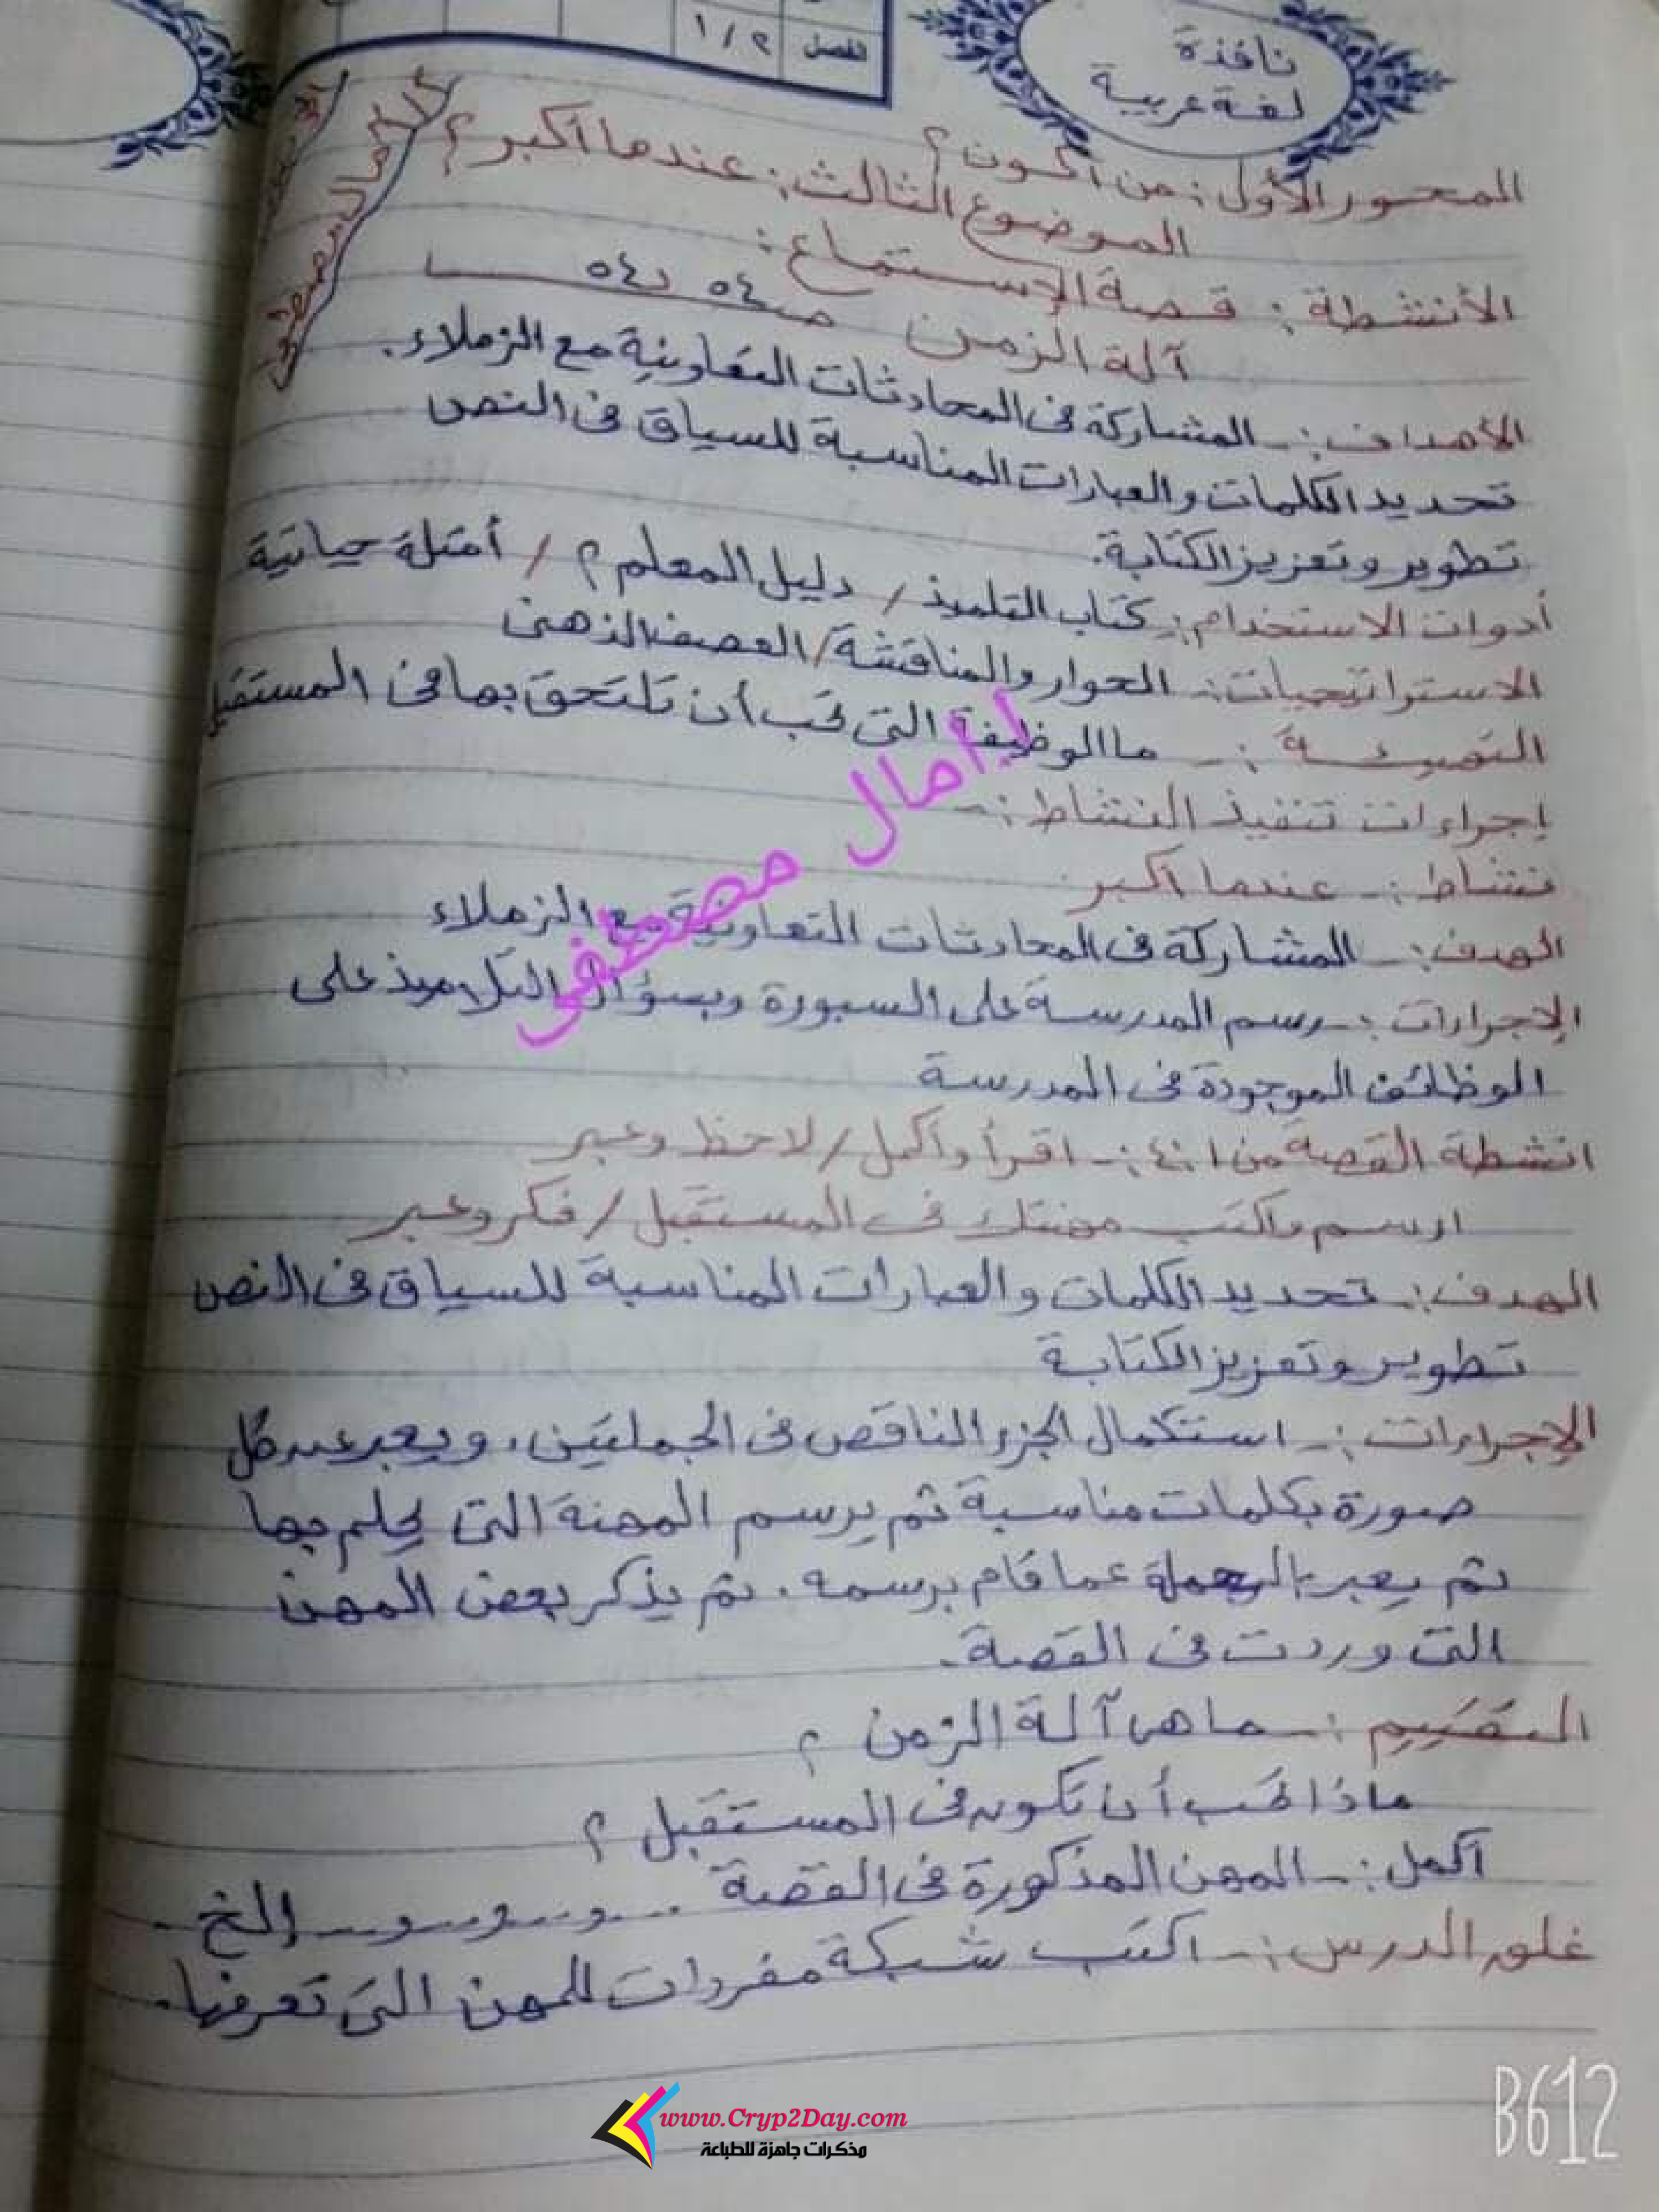 نافذة
لغة عربية
الفصل ١/٢
المحور الأول : من أكون ؟
الموضوع الثالث : عندما أكبر ؟
الأنشطة : قصة الاستماع :
آلة الزمن ص ٥٤ ، ٥٤
الأهداف :- المشاركة فى المحادثات التعاونية مع الزملاء .
تحديد الكلمات والعبارات المناسبة للسياق فى النص
تطوير وتعزيز الكتابة .
أدوات الاستخدام :- كتاب التلميذ / دليل المعلم ؟ / أمثلة حياتية
الاستراتيجيات :- الحوار والمناقشة / العصف الذهنى
التهيئة :- ما الوظيفة التى تحب أن تلتحق بها فى المستقبل
إجراءات تنفيذ النشاط :-
نشاط :- عندما أكبر
الهدف :- المشاركة فى المحادثات التعاونية مع الزملاء
الإجراءات :- رسم المدرسة على السبورة وبسؤال التلاميذ على
الوظائف الموجودة فى المدرسة
انشطة القصة من ١ : ٤ :- اقرأ وأكمل / لاحظ وعبر
ارسم واكتب مهنتك فى المستقبل / فكر وعبر
الهدف :- تحديد الكلمات والعبارات المناسبة للسياق فى النص
تطوير وتعزيز الكتابة
الإجراءات :- استكمال الجزء الناقص فى الجملتين ، ويعبر عن كل
صورة بكلمات مناسبة ثم يرسم المهنة التى يحلم بها
ثم يعبر عما قام برسمه . ثم يذكر بعض المهن
التى وردت فى القصة .
التقييم :- ما هى آلة الزمن ؟
ماذا تحب أن تكون فى المستقبل ؟
أكمل :- المهن المذكورة فى القصة .... و .... و .... و .... إلخ
غلق الدرس :- اكتب شبكة مفردات للمهن التى تعرفها .
آمال مصطفى
www.Cryp2Day.com
مذكرات جاهزة للطباعة
B612